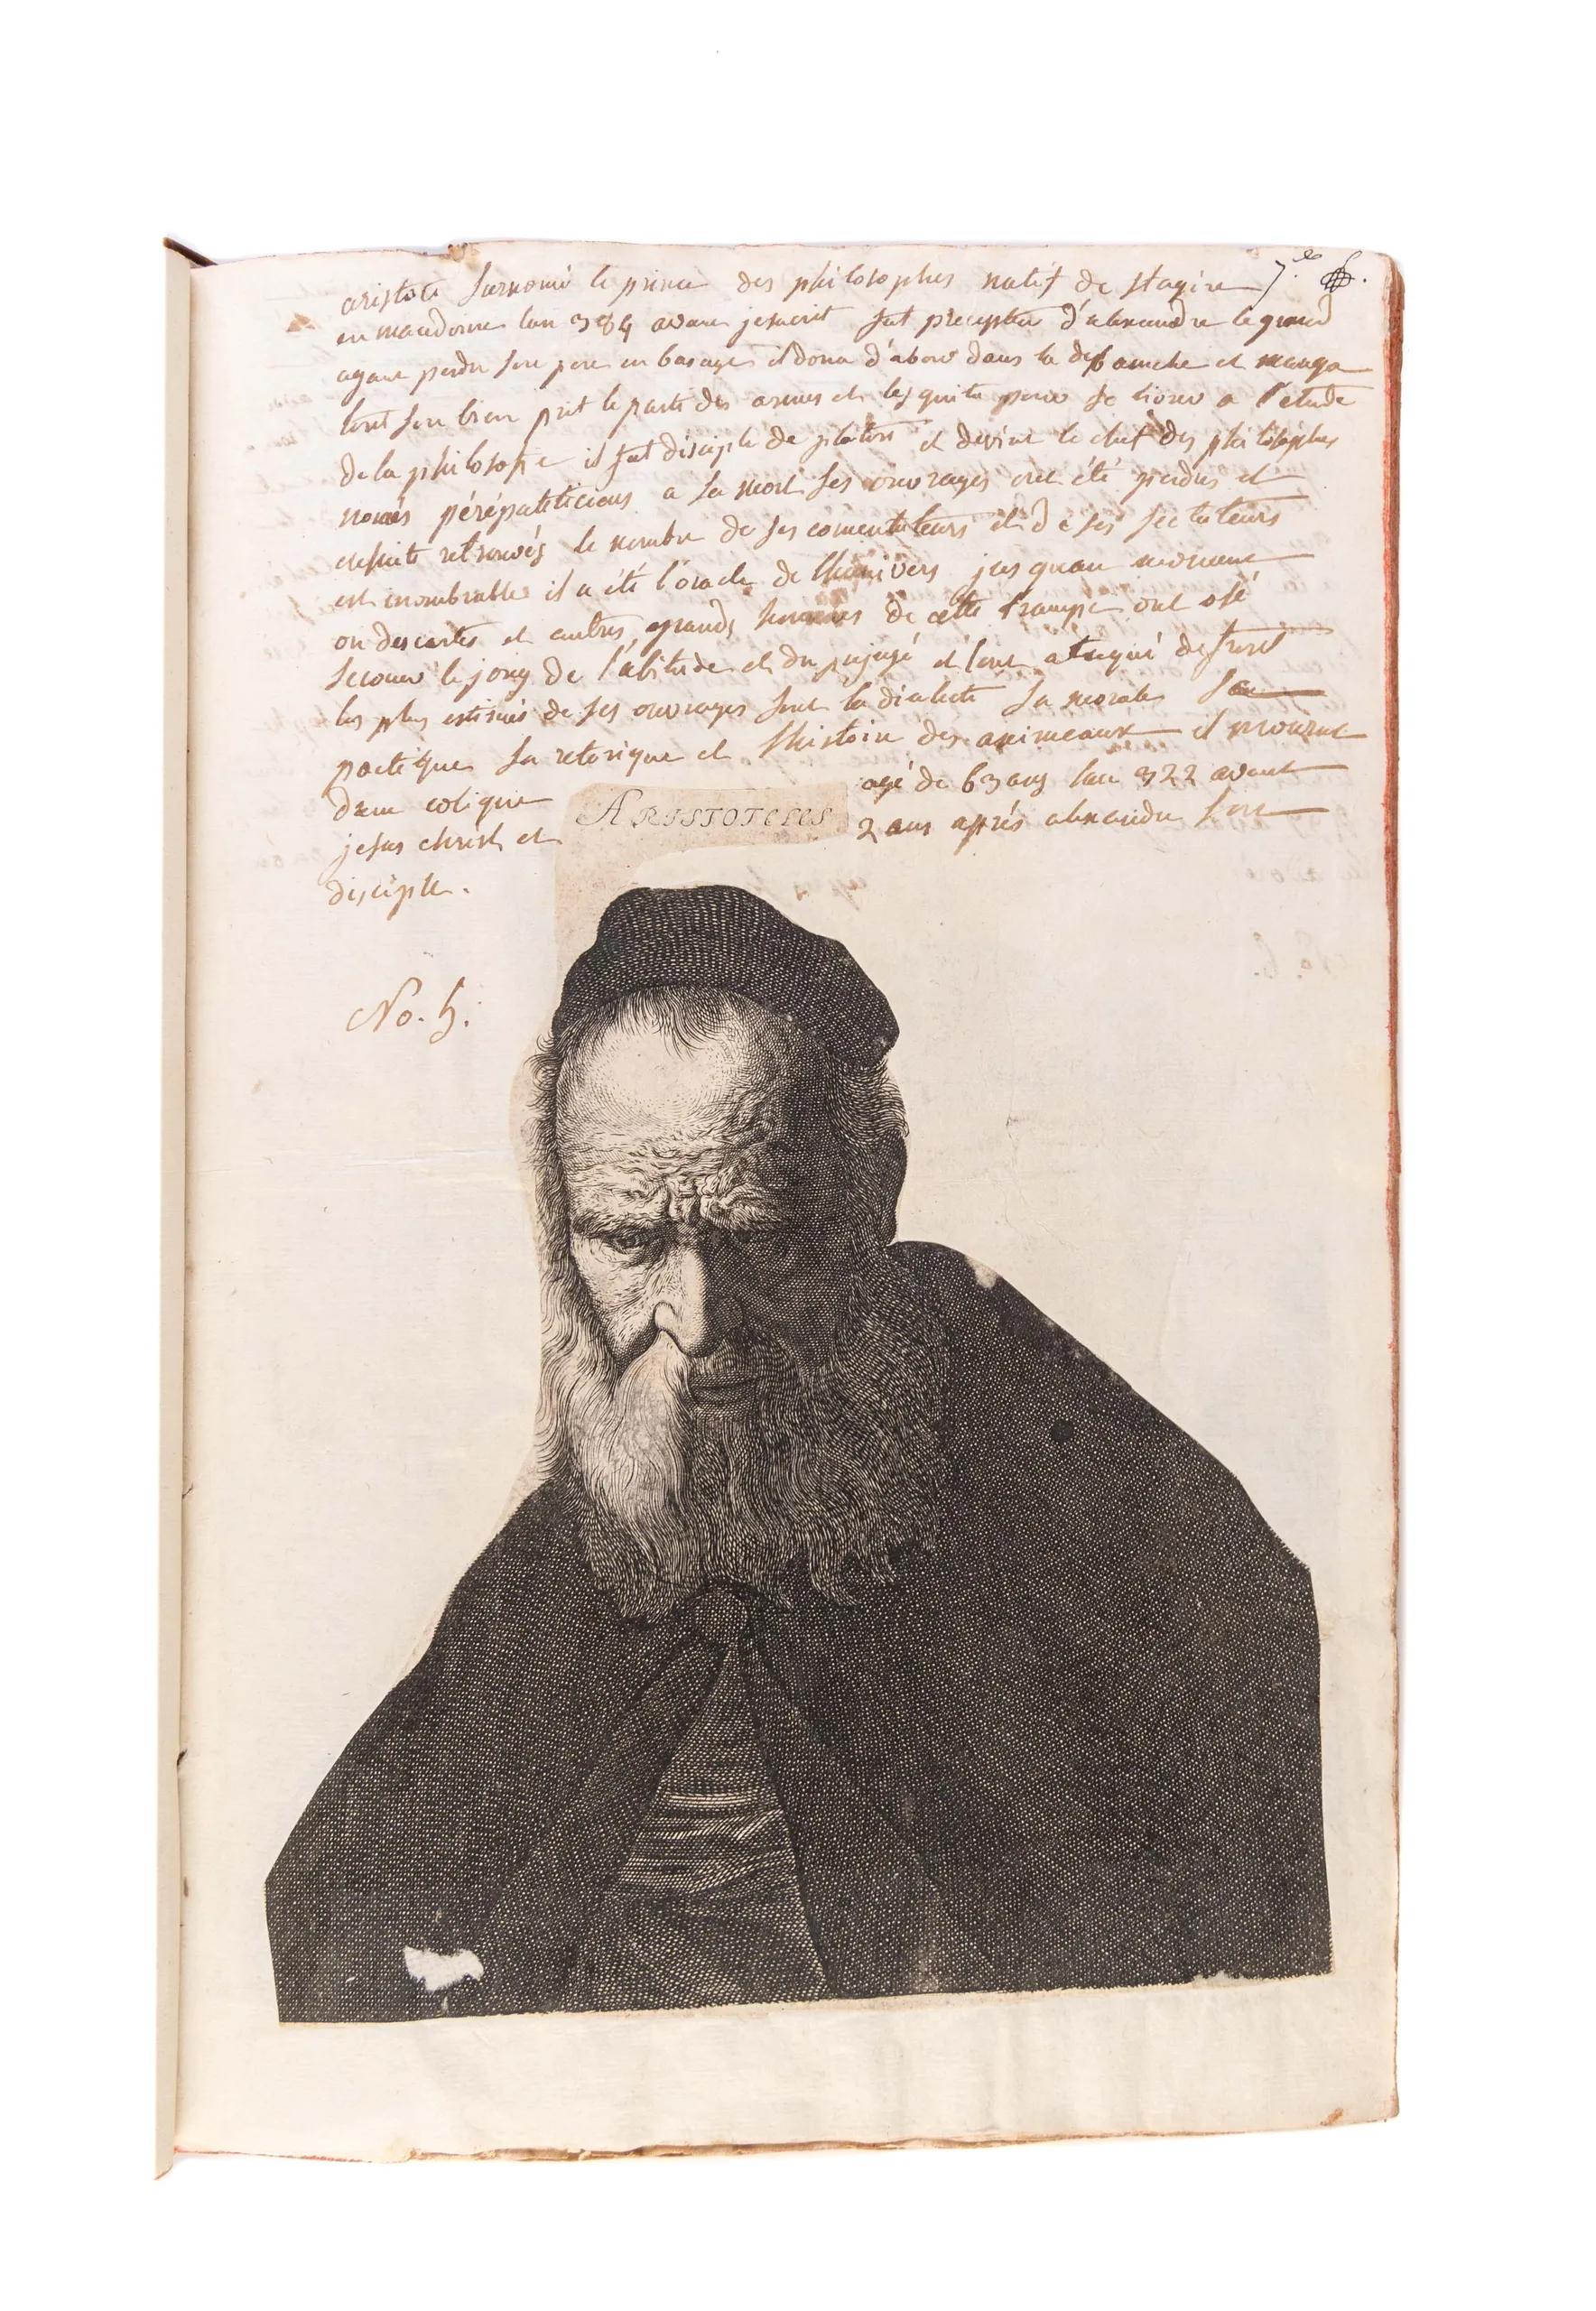 aristote surnomé le prince des philosophes natif de stagire 7.e
en macedoine lan 384 avant jesucrit fut precepteur d'alexandre le grand
ayant perdu son pere en bas age il dona d'abord dans la debauche et mangea
tout son bien prit le parti des armes et les quita pour se livrer a l'etude
de la philosofie il fut disciple de platon et devint le chef des philosophes
només péripateticiens a sa mort ses ouvrages ont été perdus et
ensuite retrouvés le nombre de ses comentateurs et de ses sectateurs
est inombrable il a été l'oracle de lhunivers jusquau moment
ou descartes et autres grands hommes de cette trampe ont osé
secouer le joug de l'abitude et du prejugé et lont ataqué de front
les plus estimés de ses ouvrages sont la dialecte sa morale sa
poetique sa retorique et lhistoire des animeaux il mourut
dune colique agé de 63 ans lan 322 avant
ARISTOTELES
jesus christ et 2 ans aprés alexandre son
disciple.
No. 5.